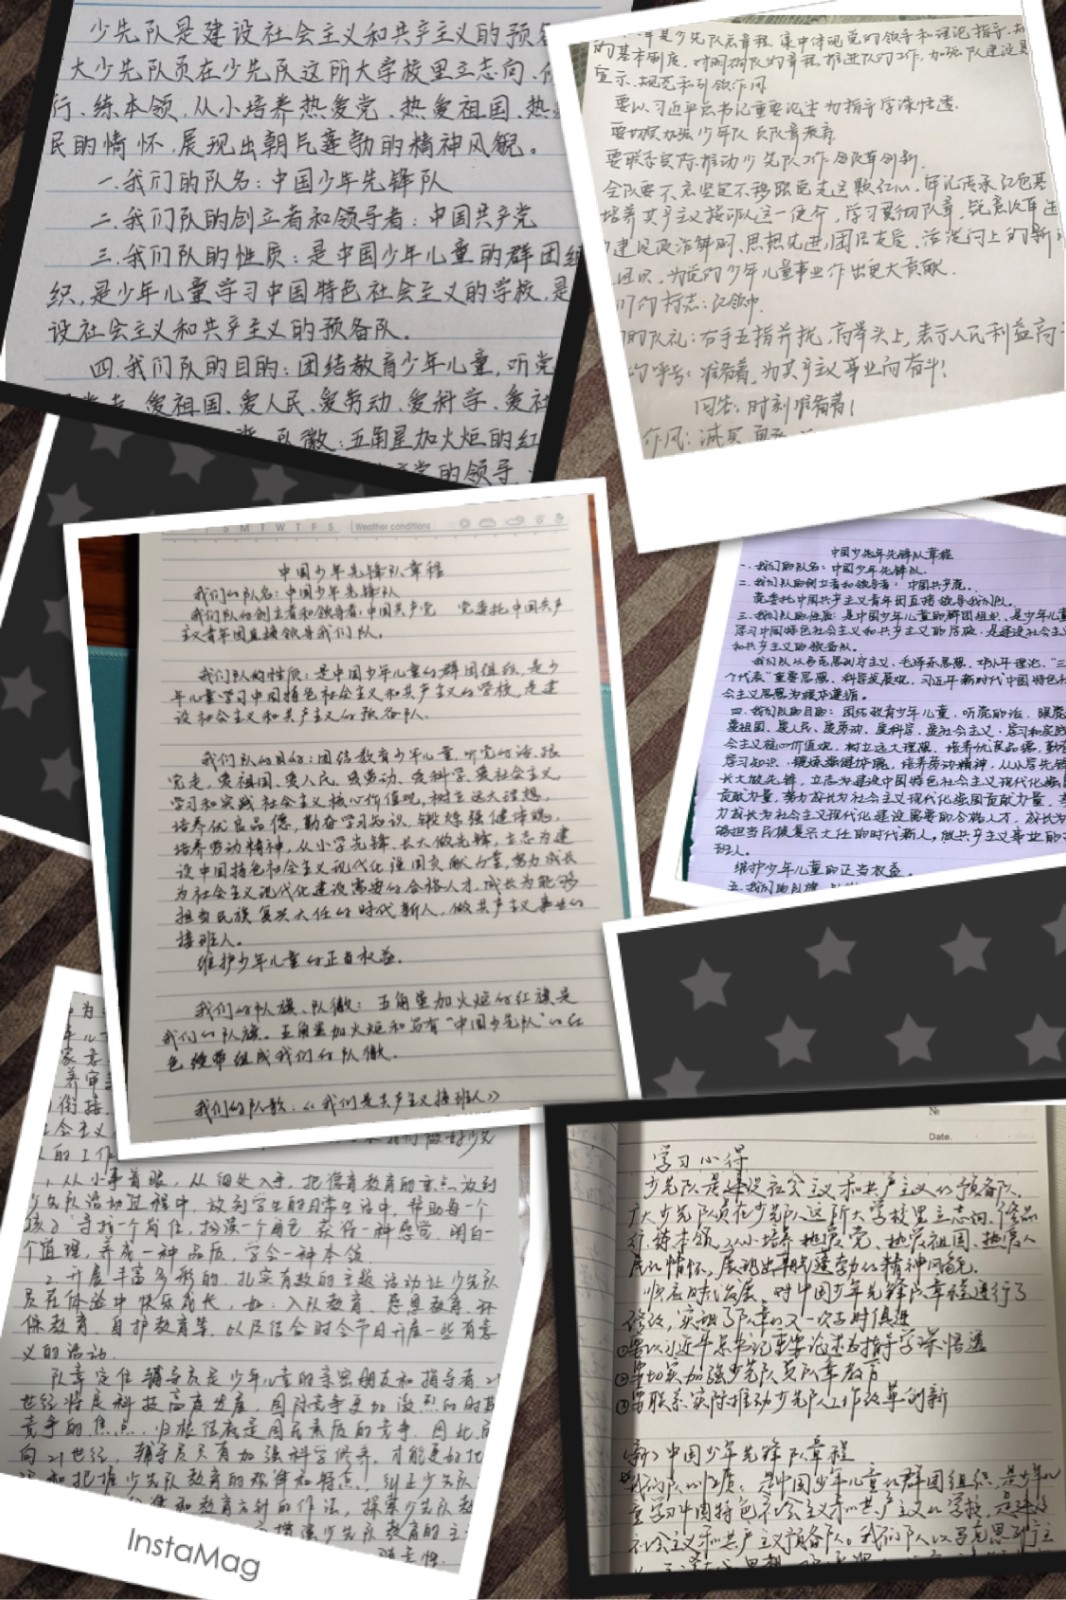 少先队是建设社会主义和共产主义的预
大少先队员在少先队这所大学校里立志向、
行、练本领,从小培养热爱党、热爱祖国、热
民的情怀,展现出朝气蓬勃的精神风貌。
一.我们的队名:中国少年先锋队
二.我们队的创立者和领导者:中国共产党
三.我们队的性质:是中国少年儿童的群团组
织,是少年儿童学习中国特色社会主义的学校,是
设社会主义和共产主义的预备队。
四.我们队的目的:团结教育少年儿童,听党
爱祖国、爱人民、爱劳动、爱科学、爱社
队徽:五角星加火炬的红
的领导
是少先队总章程,集中体现党的领导和理论指导
的基本制度、
宣示、规范和引领作用
要以习近平总书记重要论述为指导学深悟透.
要切实加强少年队员队章教育
要联系实际推动少先队工作改革创新.
培养共产主义接班人这一使命,学习贯彻队章,锐意改革
为党的少年儿童事业作出更大贡献.
们的标志:红领巾
的队礼:右手五指并拢,高举头上,表示人民利益高
的呼号:准备着,为共产主义事业而奋斗!
回答:时刻准备着!
作风:诚实
M T W T F S Weather conditions
中国少年先锋队章程
我们的队名:中国少年先锋队
我们队的创立者和领导者:中国共产党 党委托中国共产
主义青年团直接领导我们队。
我们队的性质:是中国少年儿童的群团组织,是少
年儿童学习中国特色社会主义和共产主义的学校,是建
设社会主义和共产主义的预备队。
我们队的目的:团结教育少年儿童,听党的话,跟
党走,爱祖国、爱人民、爱劳动、爱科学、爱社会主义,
学习和实践社会主义核心价值观,树立远大理想,
培养优良品德,勤奋学习知识,锻炼强健体魄,
培养劳动精神,从小学先锋、长大做先锋,立志为建
设中国特色社会主义现代化强国贡献力量,努力成长
为社会主义现代化建设需要的合格人才,成长为能够
担当民族复兴大任的时代新人,做共产主义事业的
接班人。
维护少年儿童的正当权益。
我们的队旗、队徽:五角星加火炬的红旗是
我们的队旗。五角星加火炬和写有“中国少先队”的红
色绶带组成我们的队徽。
我们的队歌:《我们是共产主义接班人》
中国少先年先锋队章程
一.我们的队名:中国少年先锋队.
二.我们队的创立者和领导者:中国共产党.
党委托中国共产主义青年团直接领导我们队。
三.我们队的性质:是中国少年儿童的群团组织、是少年儿
学习中国特色社会主义和共产主义的学校、是建设社会主
和共产主义的预备队。
我们队以马克思列宁主义、毛泽东思想、邓小平理论、“三
个代表”重要思想、科学发展观、习近平新时代中国特色社
会主义思想为根本遵循。
四.我们队的目的:团结教育少年儿童,听党的话,跟党
爱祖国、爱人民、爱劳动、爱科学、爱社会主义,学习和实践
会主义核心价值观,树立远大理想,培养优良品德,勤奋
学习知识,锻炼强健体魄,培养劳动精神,从小学先锋
长大做先锋,立志为建设中国特色社会主义现代化强国
贡献力量,努力成长为社会主义现代化强国贡献力量,
力成长为社会主义现代化建设需要的合格人才,成长为
够担当民族复兴大任的时代新人,做共产主义事业的
班人。
维护少年儿童的正当权益。
五.我们的队旗
衔接
会主义
人的工作
1,从小事着眼,从细处入手,把德育教育的重点放到
少先队活动过程中,放到学生的日常生活中,帮助每一个
孩子 寻找一个岗位,扮演一个角色 获得一种感觉 明白一
个道理,养成一种品质,学会一种本领
2.开展丰富多彩的、扎实有效的主题活动让少先队
员在体验中快乐成长,如:入队教育、感恩教育、环
保教育、自护教育等,以及结合时令节日开展一些有意
义的活动.
队章定位辅导员是少年儿童的亲密朋友和指导者,21
世纪将是科技高度发展,国际竞争更加激烈的时期
竞争的焦点,归根结底是国民素质的竞争.因此,面
向21世纪,辅导员只有加强科学修养,才能更好地
和把握少先队教育的规律和特点,纠正少先队
和教育方针的作法,探索少先队教
少先队教育的主
InstaMag
№
Date.
学习心得
少先队是建设社会主义和共产主义的预备队,
广大少先队员在少先队这所大学校里立志向、修品
行、练本领,从小培养热爱党、热爱祖国、热爱人
民的情怀,展现出朝气蓬勃的精神风貌.
顺应时代发展,对中国少年先锋队章程进行了
修改,实现了队章的又一次与时俱进
①要以习近平总书记重要论述为指导学深悟透
②要切实加强少先队员队章教育
③要联系实际推动少先队工作改革创新
(新)中国少年先锋队章程
我们队的性质:是中国少年儿童的群团组织,是少年儿
童学习中国特色社会主义和共产主义的学校,是建设
社会主义和共产主义预备队。我们队以马克思列宁主